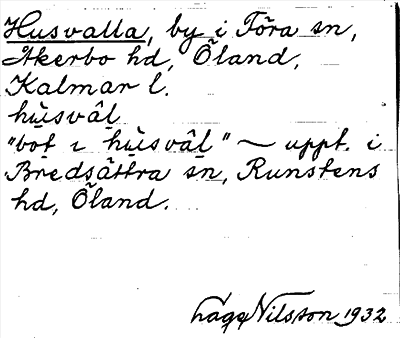 Husvalla, by i Föra sn,
Åkerbo hd, Öland,
Kalmar l.
hùsvâl
"bot ı hùsvâl" ~ uppt. i
Bredsättra sn, Runstens
hd, Öland.
Lage Nilsson 1932